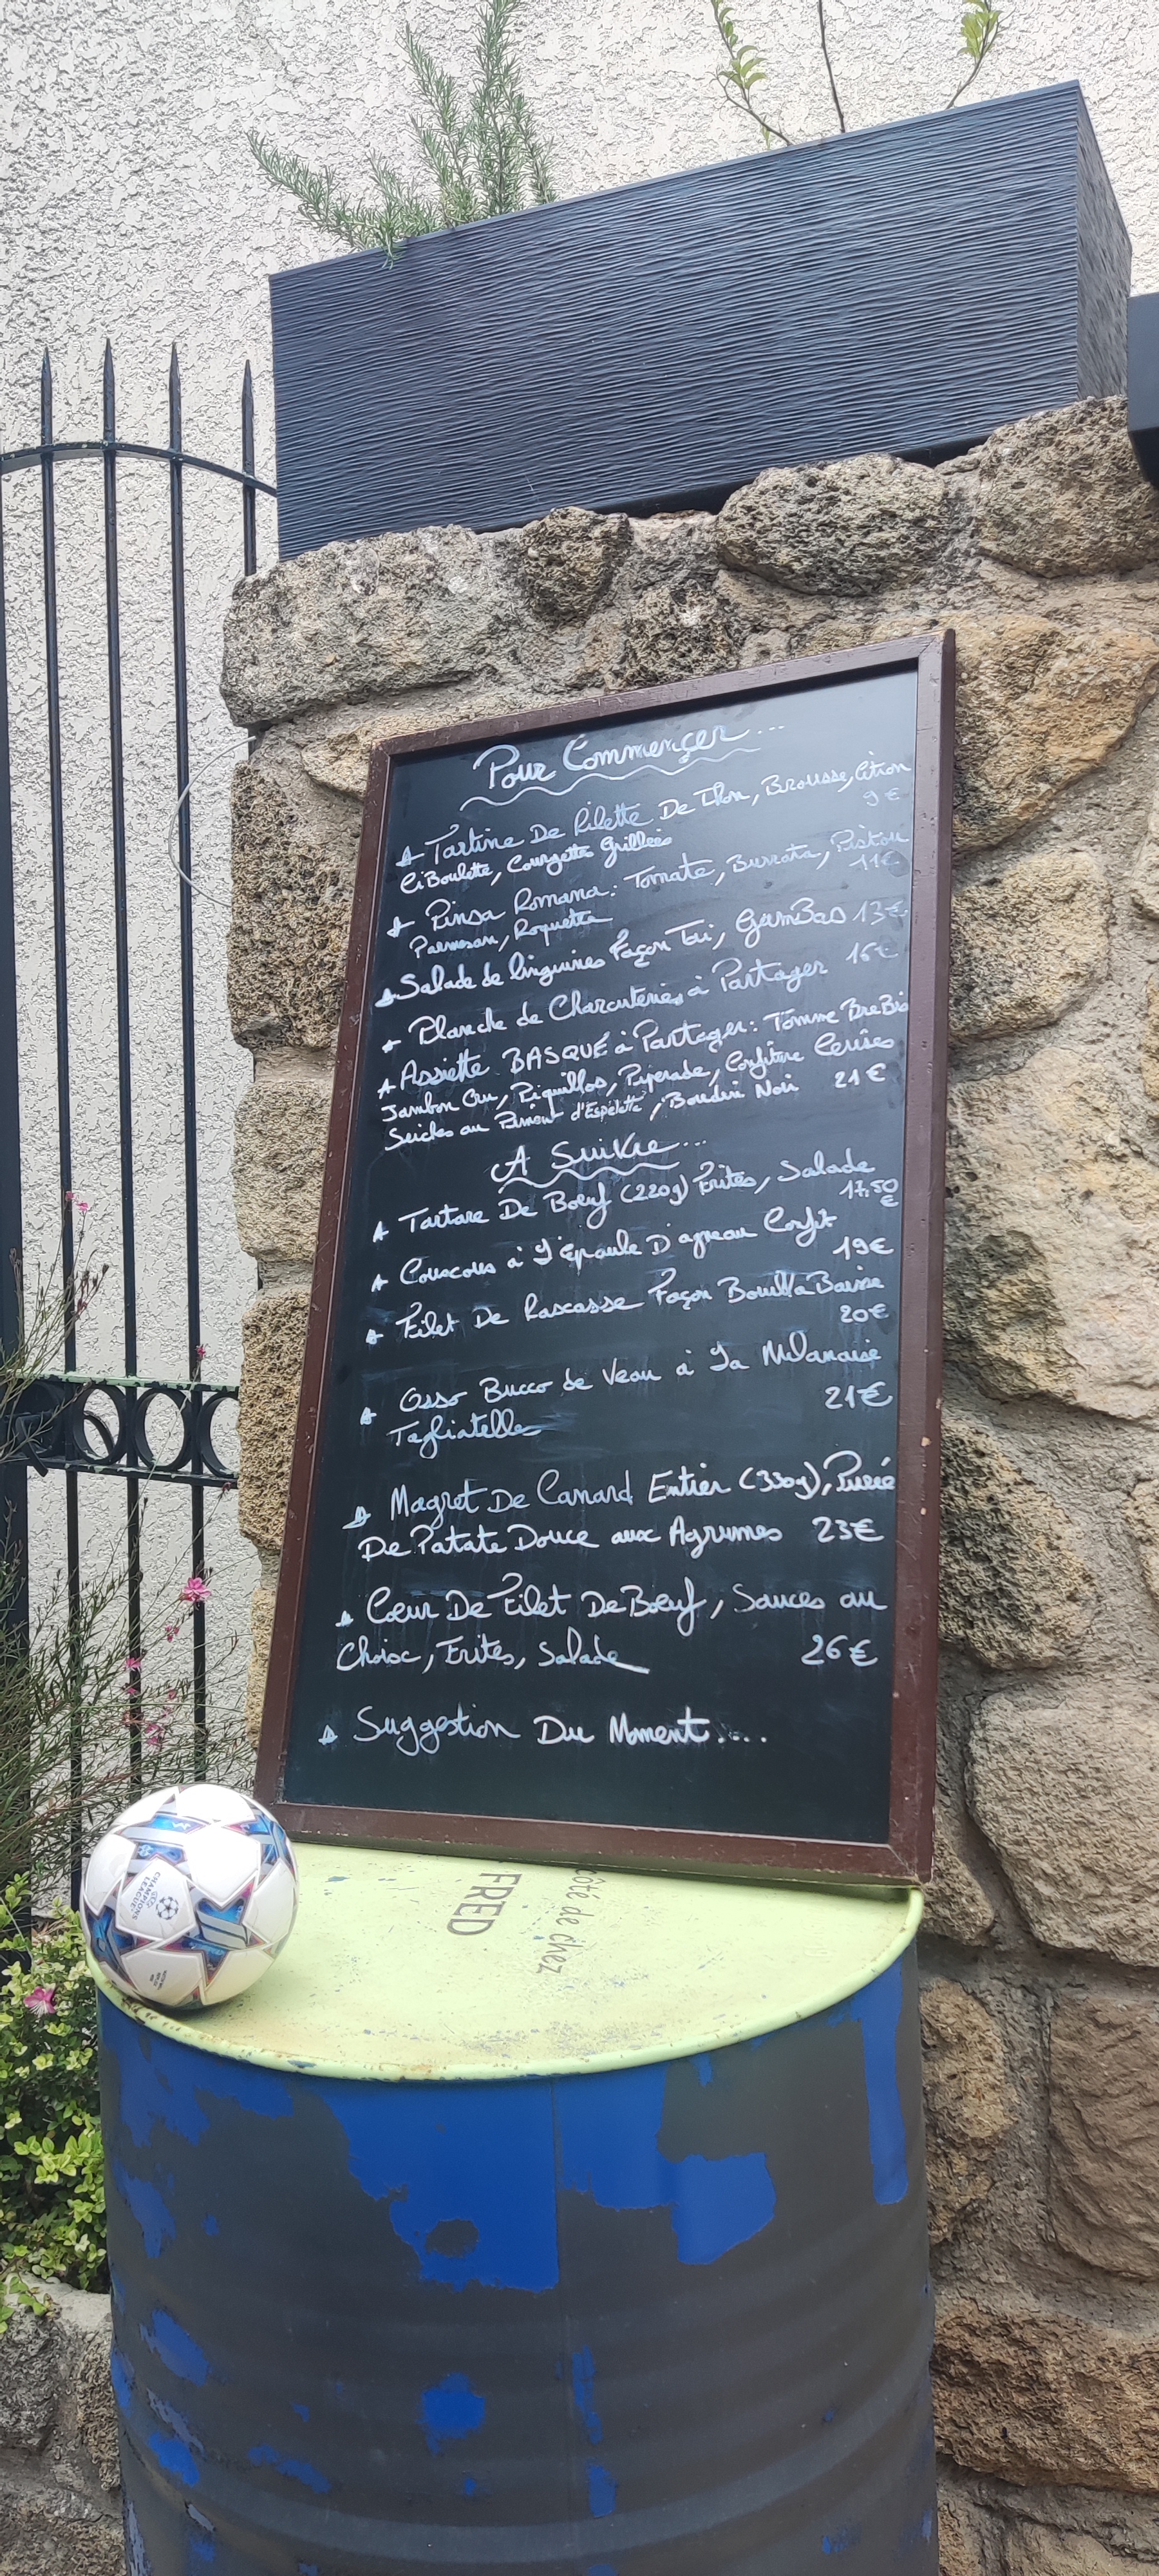 Pour Commençer...
Tartine De Rilette De Thon, Brousse, Citron
CiBoulette, Courgettes Grillées
9€
Pinsa Romana: Tomate, Burrata, Pistou
Parmesan, Roquette
11€
Salade de linguines Façon Taï, GamBas 13€
Planche de Charcuteries à Partager 16€
Assiette BASQUE à Partager: Tomme BreBis
Jambon Cru, Piquillos, Piperade, Confiture Cerises
Seiches au Piment d'Espelette, Boudin Noir 21€
A Suivre...
Tartare De Bœuf (220g) Frites, Salade
17,50
€
Couscous à l'Epaule D'agneau Confit
19€
Filet De Rascasse Façon BouillaBaisse
20€
Osso Bucco de Veau à la Milanaise
Tagliatelles
21€
Magret De Canard Entier (330g), Purée
De Patate Douce aux Agrumes 23€
Cœur De Filet De Bœuf, Sauces au
Choix, Frites, Salade 26€
Suggestion Du Moment....
côté de chez
FRED
UEFA
CHAMPIONS
LEAGUE